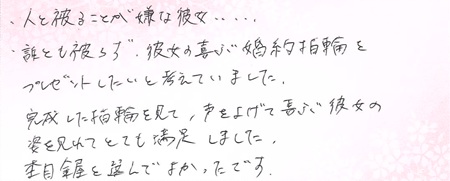 ・人と被ることが嫌な彼女‥‥.
・誰とも被らず、彼女の喜ぶ婚約指輪を
プレゼントしたいと考えていました.
完成した指輪を見て,声をあげて喜ぶ彼女の
姿を見れてとても満足しました.
杢目金屋を選んでよかったです.